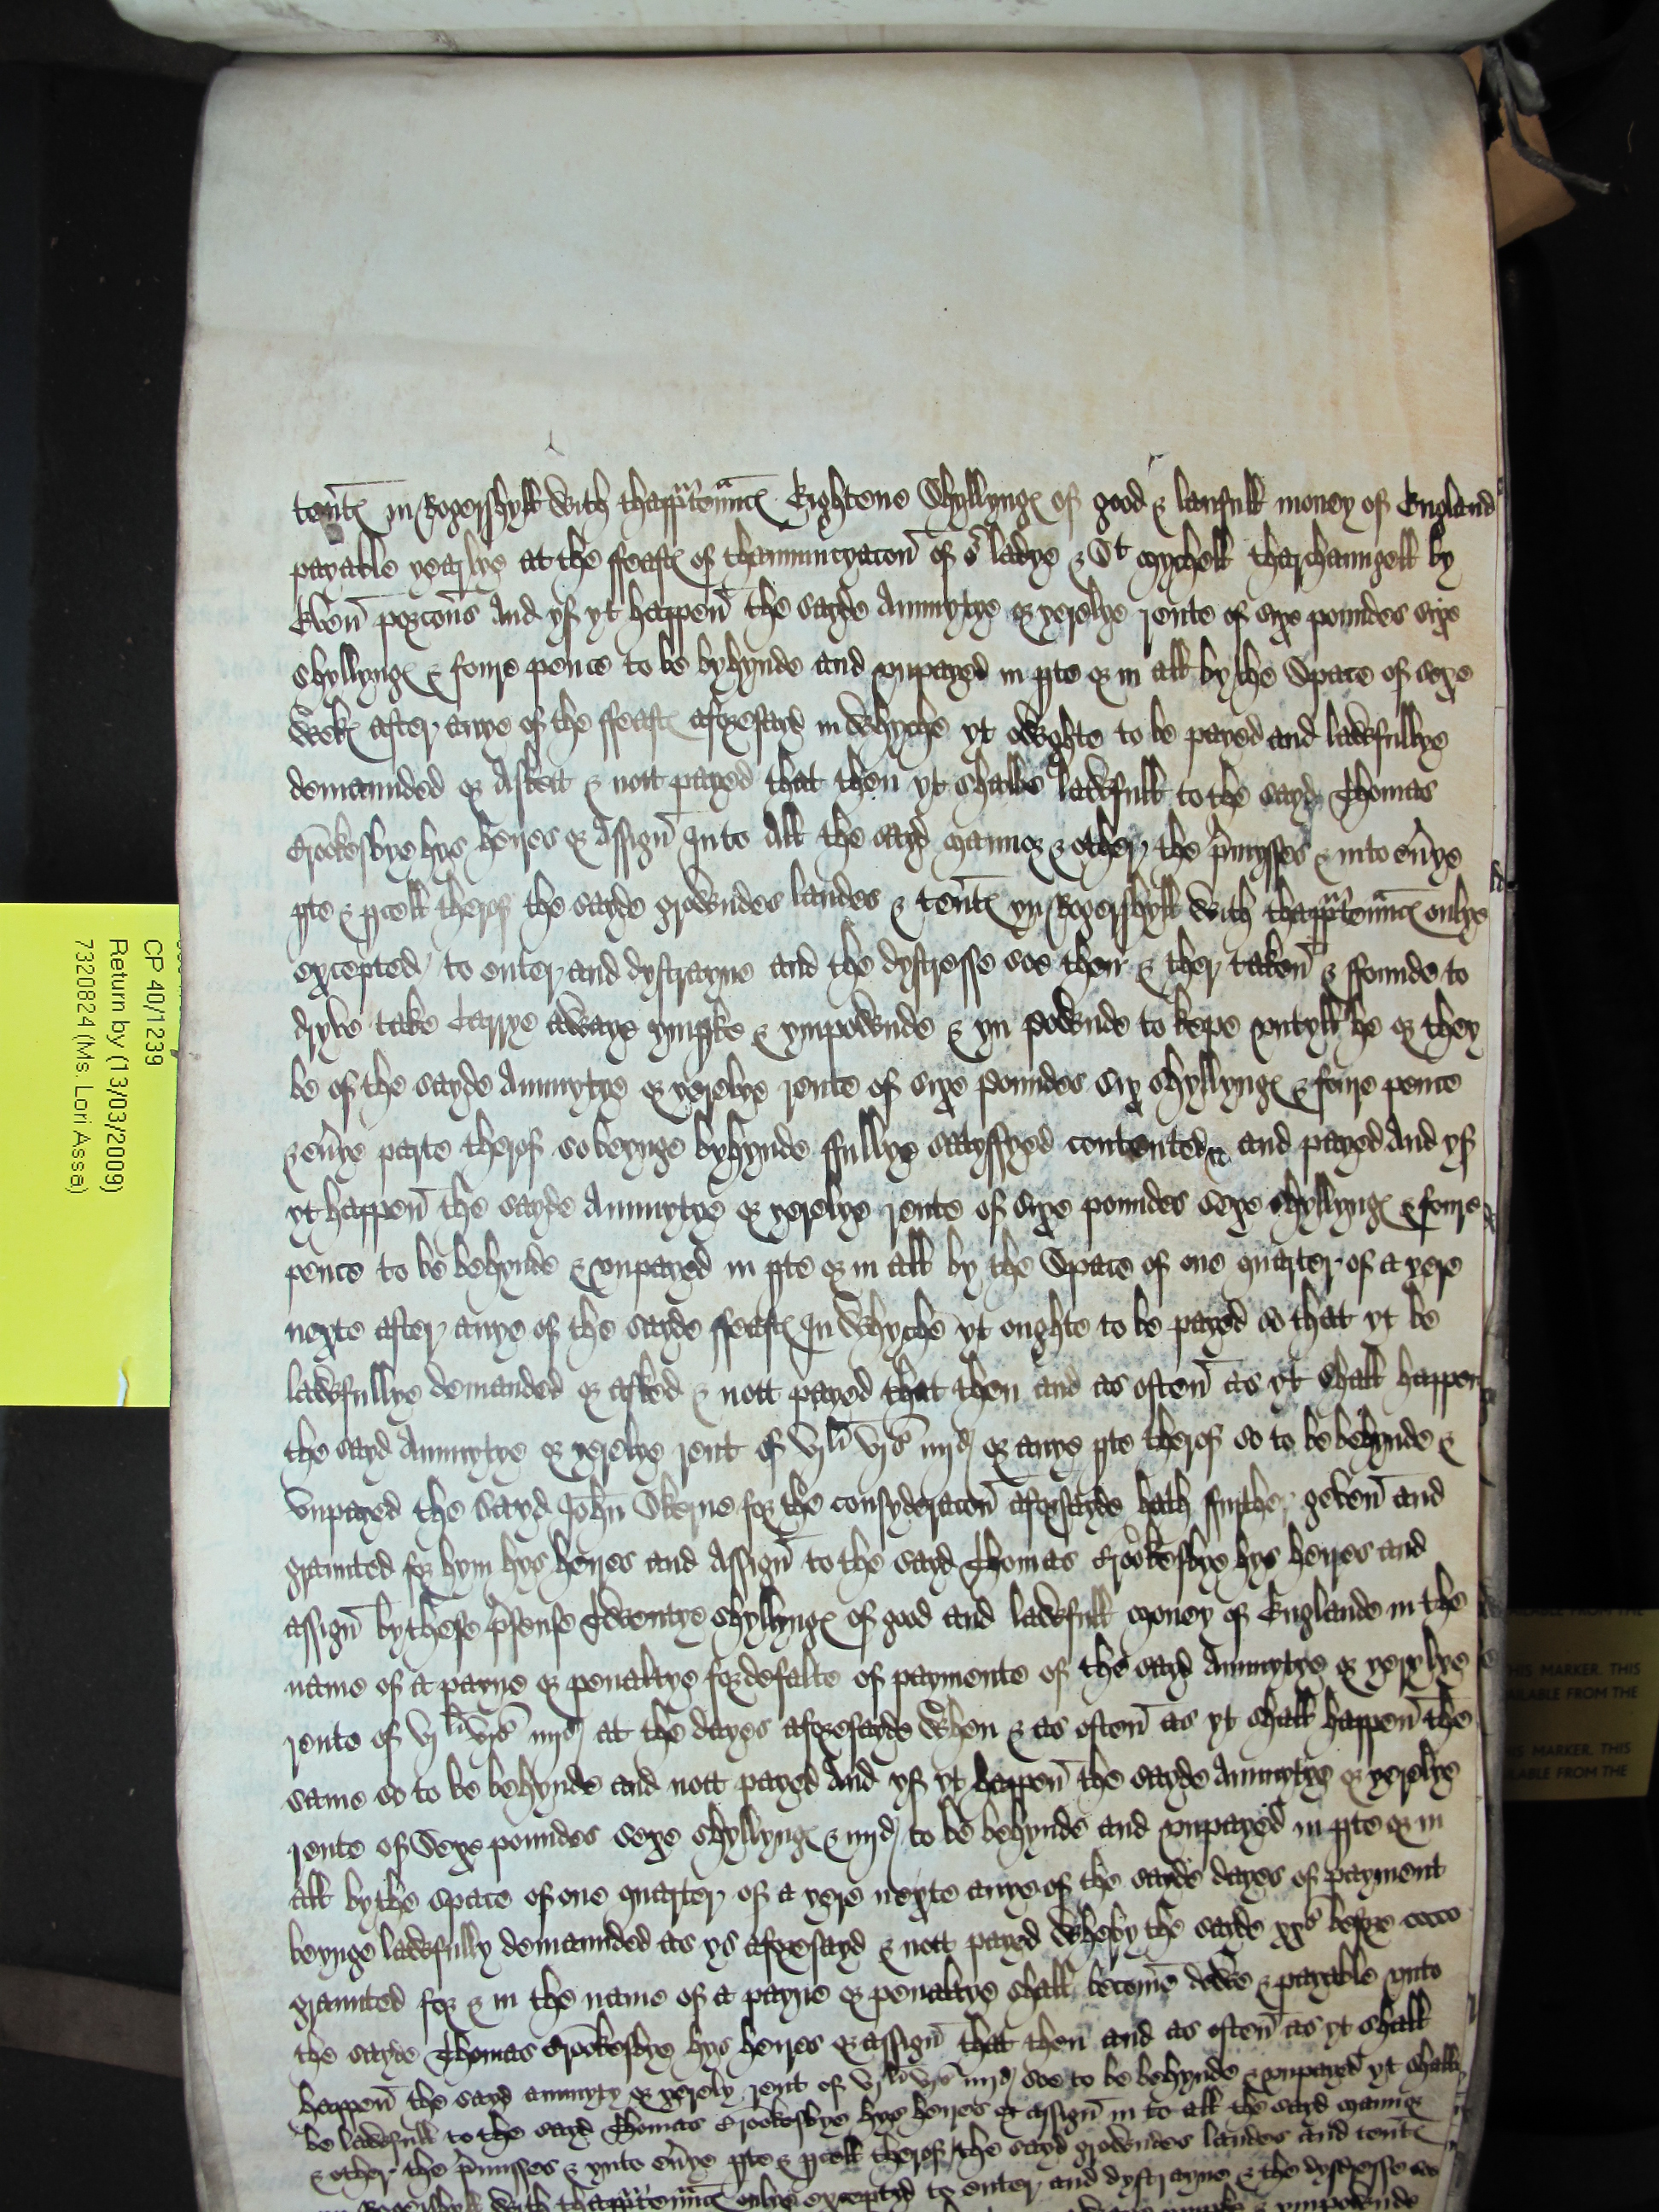 tent(es) in Rogershyll with thapp(ur)ten(a)nc(es) Eightene Shyllyng(es) of good & laufull money of England
payable yearlye at the ffeast(es) of thannuncyacon of o(r) ladye & St Mychell tharchaungell by
Even porcons And yf yt happen the sayde Annuytye or yerelye rente of sixe poundes sixe
shyllyng(es) & foure pence to be byhynde and vnpayed in p(ar)te or in all by the Space of sexe
wek(es) after anye of the ffeast(es) aforesayd in whyche yt owghte to be payed and lawfullye
demaunded or Asked & nott payed that then yt shalbe lawfull to the sayd Thomas
hys heires or Assign Into All the sayd mannor & other the p(re)mysses & into eu(er)ye
p(ar)te & p(ar)cell therof the sayde growndes landes & tent(es) yn Rogershyll with thapp(ur)ten(a)nc(es) onlye
excepted to enter and dystrayne and the dystresse soe then & ther taken & ffounde to
dryve take Carrye awaye ymp(ar)ke & ympownde & yn pownde to kepe vntyll he or they
be of the sayde Annuytye or yerelye rente of sixe poundes six shyllyng(es) & foure pence
& eu(er)ye parte therof so beynge byhynde ffullye satysfyed contented and payed And yf
yt happen the sayde Annuytye or yerelye rente of sixe poundes sexe shyllyng(es) & foure
pence to be behynde & vnpayed in p(ar)te or in all by the Space of one quarter of a yere
nexte after anye of the sayde ffeast(es) In whyche yt oughte to be payed so that yt be
lawfullye demanded or asked & nott payed that then and as often as yt shall happen
the sayd Annuytye or yerelye rent of vj li vj s iiij d or anye p(ar)te therof so to be behynde &
vnpayed the sayd John Skerne for the consyderacon aforsayde hath ffurther geven and
graunted for hym hys heires and Assign to the sayd Thomas hys heires and
assign by these p(re)sense Twentye shyllyng(es) of good and lawfull money of Englande in the
name of a payne or penaltye for defalte of paymente of the sayd Annuytye or yerylye
rente of vj li vj s iiij d at the dayes aforesayde when & as often as yt shall happen the
same so to be behynde and nott payed And yf yt happen the sayde Annuytye or yerelye
rente of Sexe poundes sexe shyllyng(es) & iiij d to be behynde and vnpayed in p(ar)te or in
all by the space of one quarter of a yere nexte anye of the sayde dayes of payment
beynge lawfully demaunded as ys aforesayd & nott payed wherby the sayde xx s before
graunted for & in the name of a payne or penaltye shall become dewe & payable vnto
the sayde Thomas hys heires or assign that then and as often as yt shall
happen the sayd annuyty or yerely rent of vj li vj s iiij d soe to be behynde & vnpayed yt shall
be lawfull to the sayd Thomas hys heires or assign in to all the sayd mannor
& other the p(re)misses & ynto eu(er)ye p(ar)te & p(ar)cell therof the sayd growndes landes and tent(es)
yn Rogershyll with thapp(ur)ten(a)nc(es) onlye exceptyd to enter and dystrayne & the dystresse so
& ympownde
CP 40/1239
Return by (13/03/2009)
7320824 (Ms. Lori Assa)
THIS MARKER. THIS
AILABLE FROM THE
IS MARKER. THIS
ILABLE FROM THE